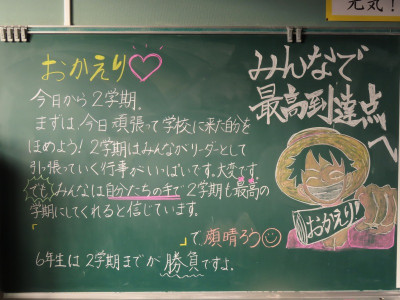 元気！
おかえり♡
今日から2学期。
まずは、今日頑張って学校に来た自分を
ほめよう！2学期はみんながリーダーとして
引っ張っていく行事がいっぱいです。大変です。
でも、みんなは自分たちの手で2学期も最高の
学期にしてくれると信じています。
「
」で、顔晴ろう☺
6年生は2学期までが勝負ですよ。
みんなで
最高到達点
へ
おかえり